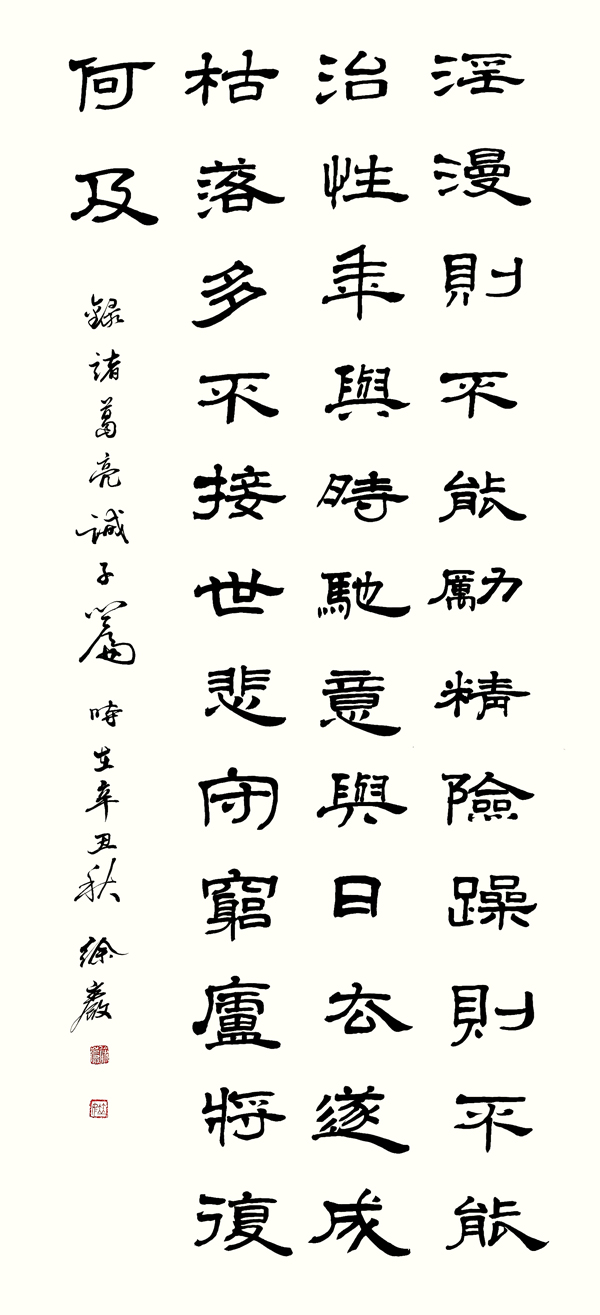 淫漫則不能勵精險躁則不能
治性年與時馳意與日去遂成
枯落多不接世悲守窮廬將復
何及
錄諸葛亮誡子篇 時在辛丑秋 徐